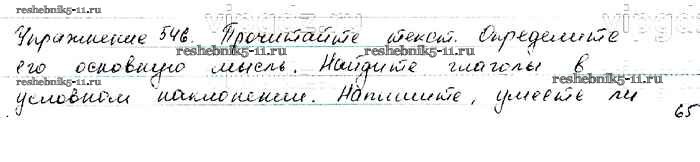 reshebnik5-11.ru reshebnik5-11.ru
Упражнение 546. Прочитайте текст. Определите
reshebnik5-11.ru reshebnik5-11.ru
его основную мысль. Найдите глаголы в
reshebnik5-11.ru reshebnik5-11.ru
условном наклонении. Напишите, умеете ли
65